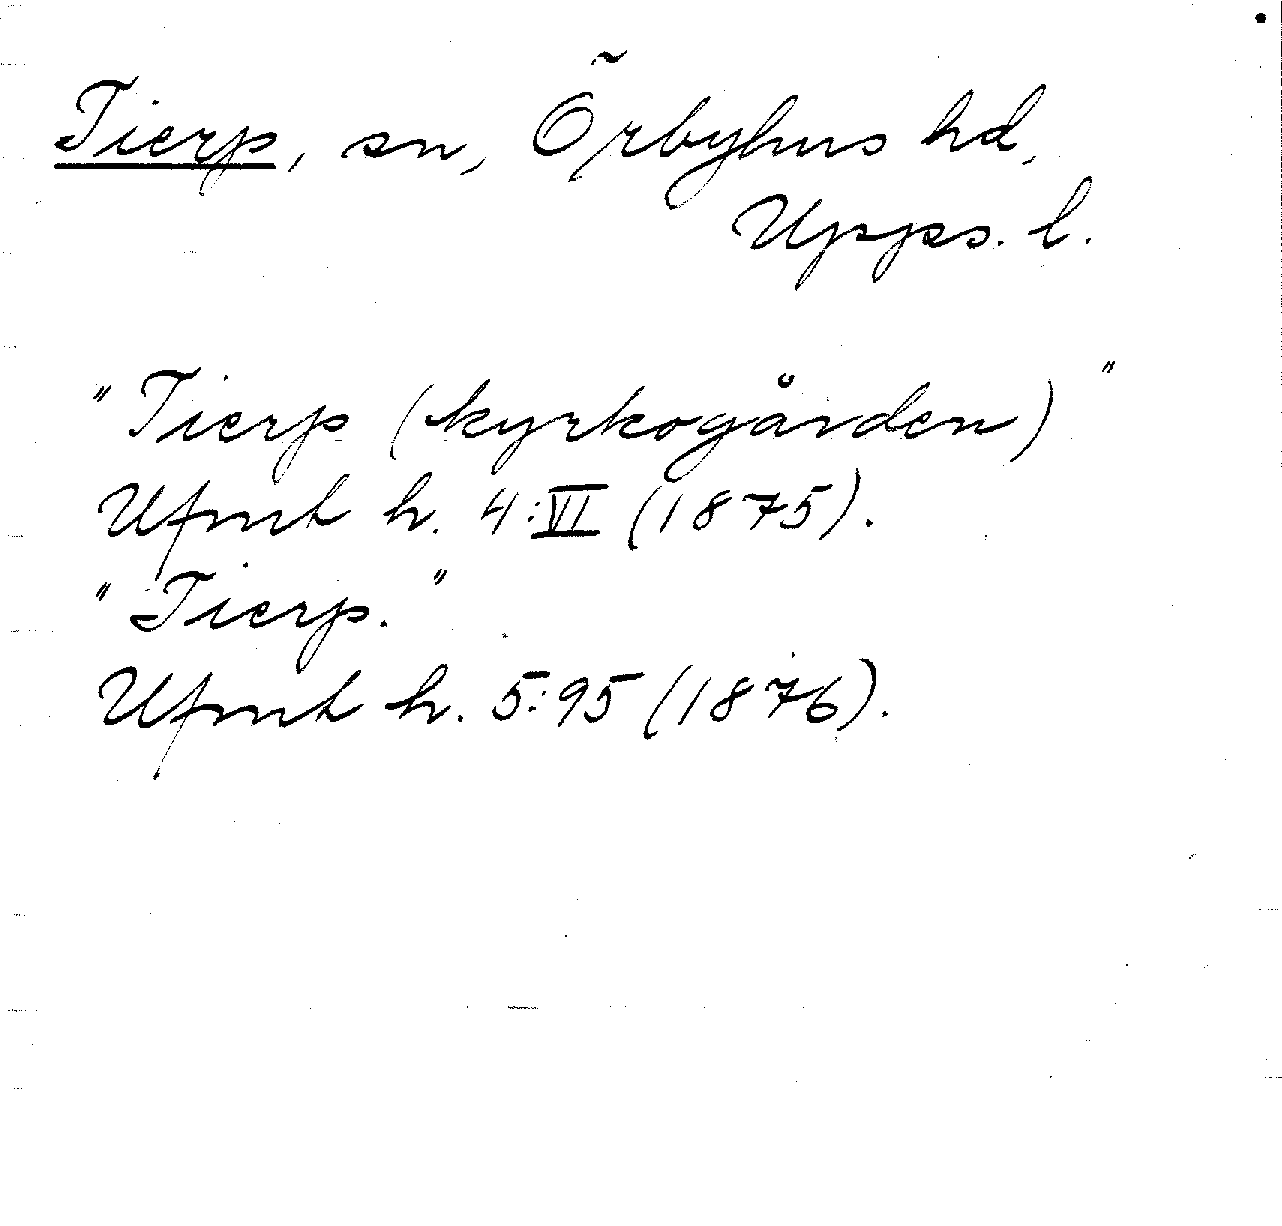 Tierp, sn, Örbyhus hd,
Upps. l.
"Tierp (kyrkogården)"
Ufmt h. 4:VI (1875).
"Tierp."
Ufmt h. 5:95 (1876).